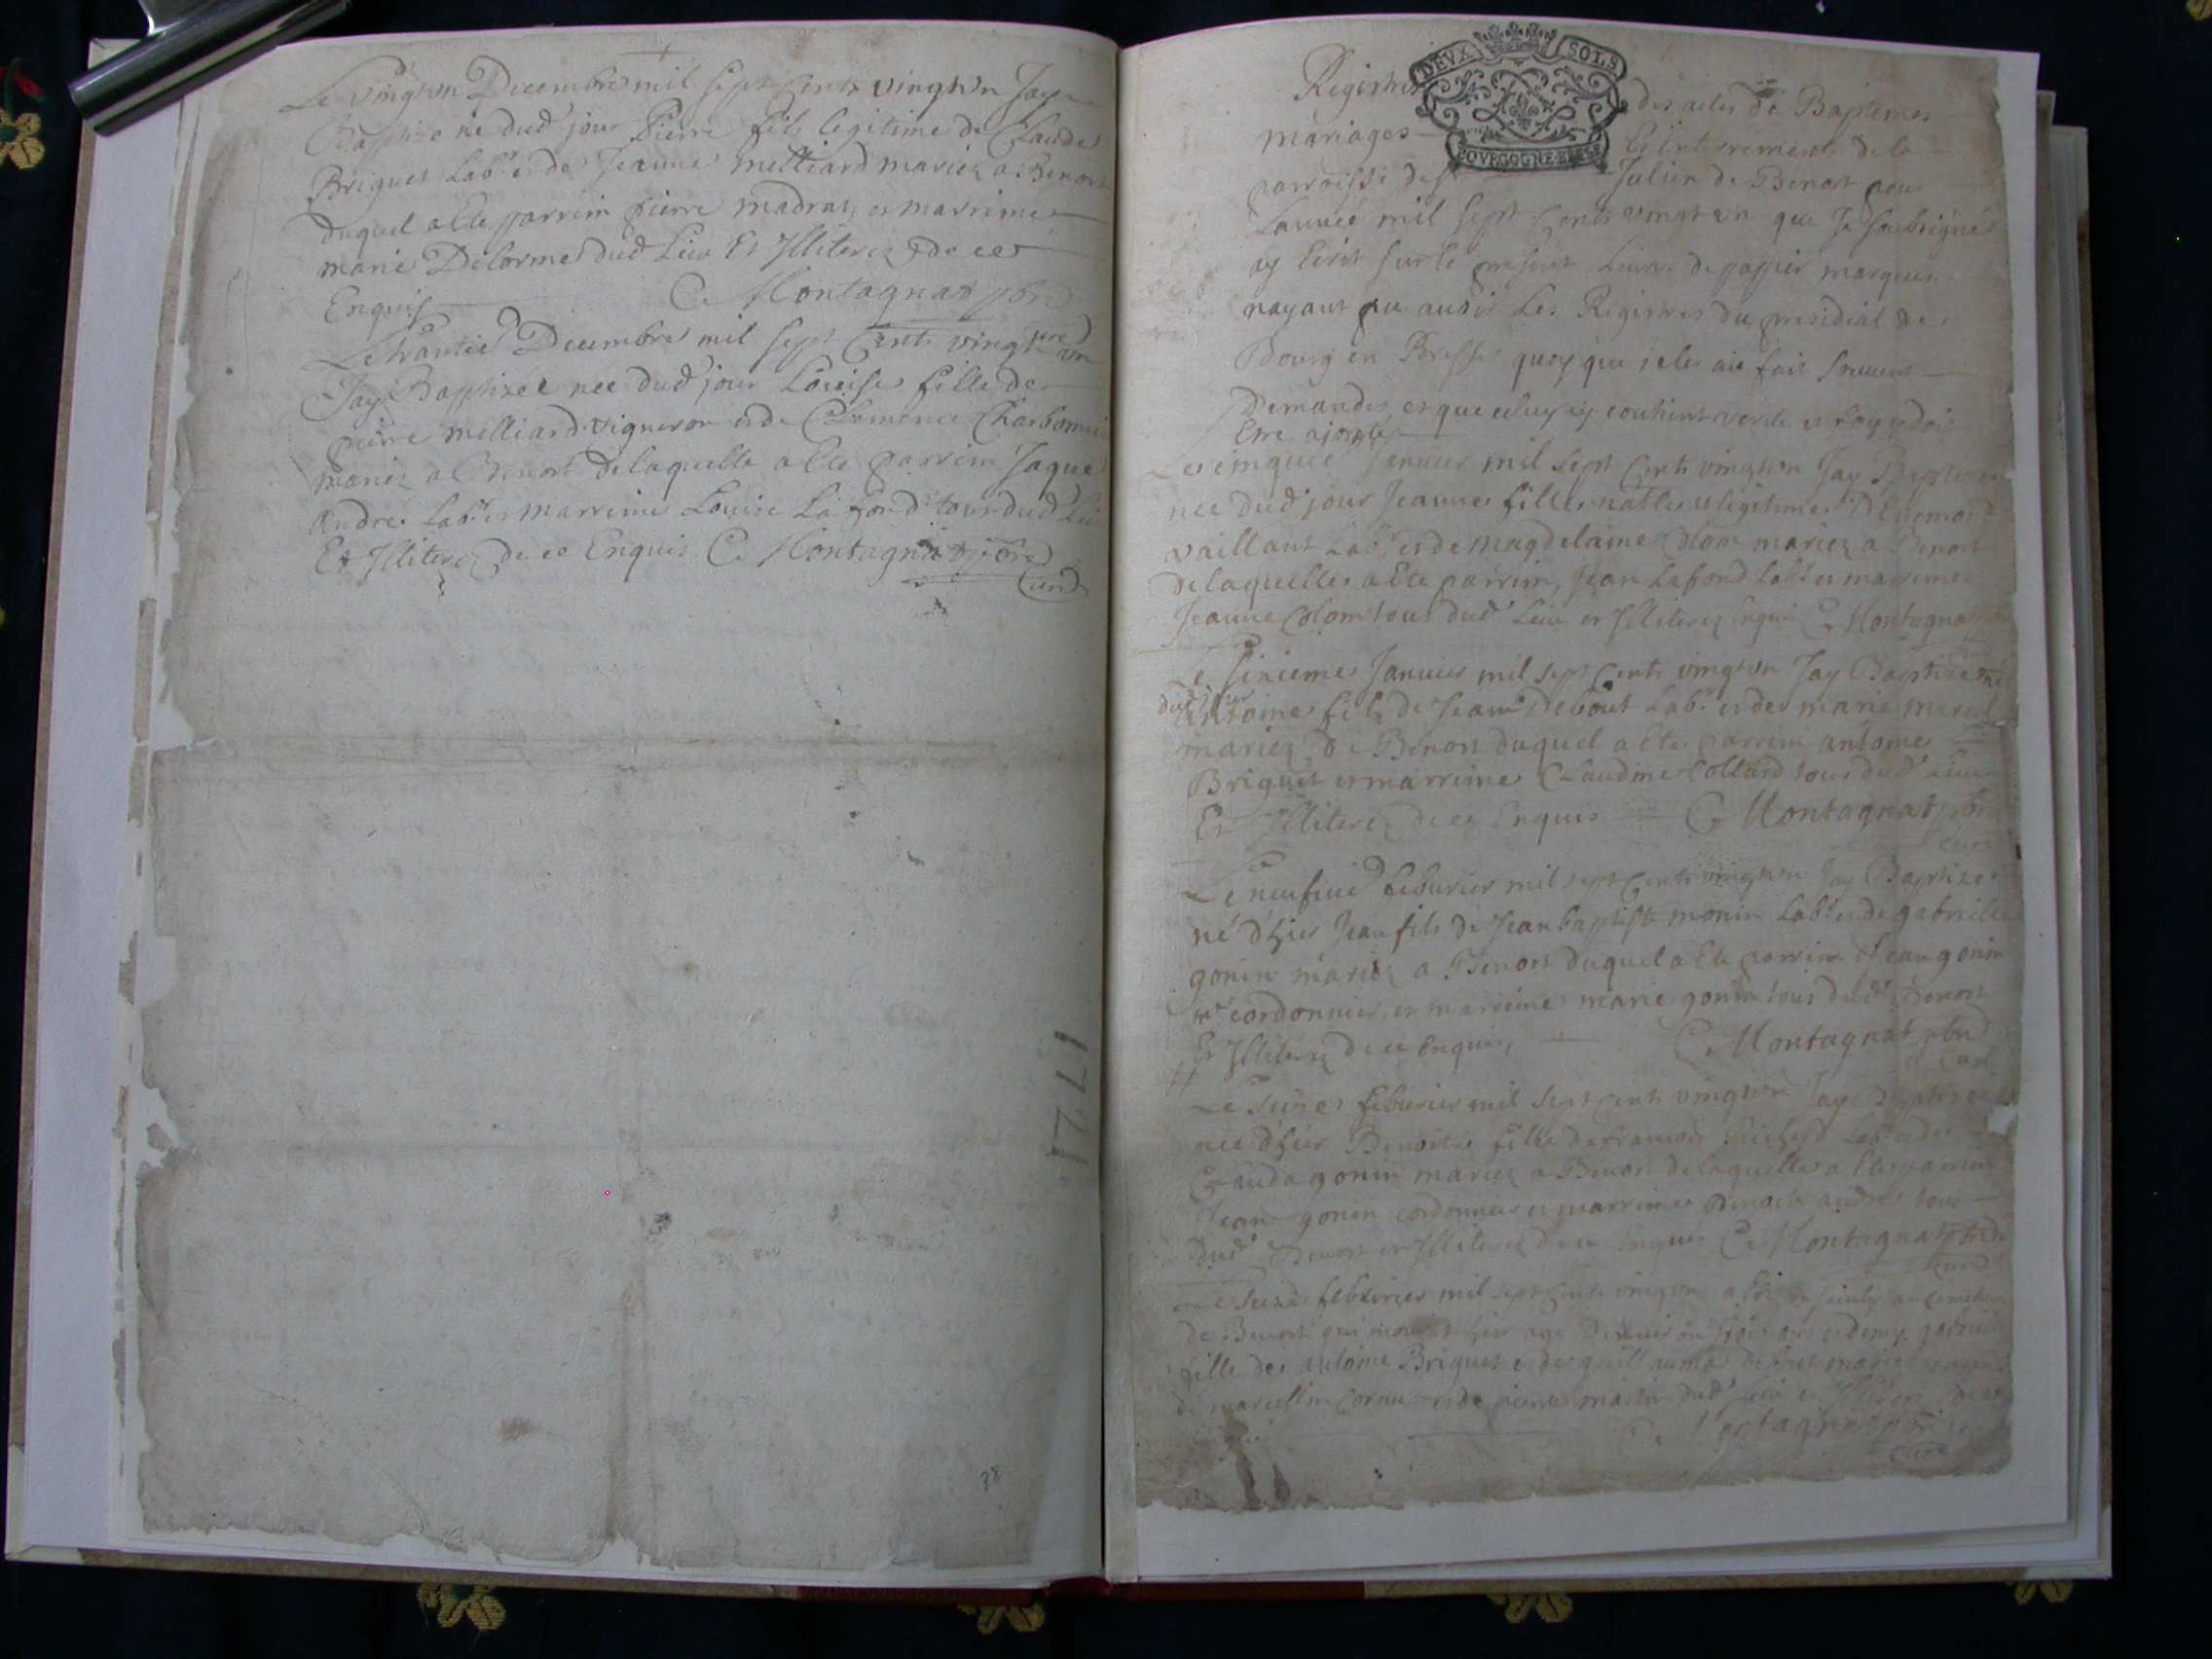 Le vingt un Decembre mil sept cents vingt un Jay
Baptisé né dud jour Pierre fils legitime de Claude
Briquet Labr et de Jeanne Melliard mariez a Benost
duquel a ete parrein pierre madras et marreine
marie Delorme dud Lieu Et Illiterez de ce
Enquis C. Montagnat pbre
Le trantie Decembre mil sept Cents vingt un
Jay Baptizée nee dud jour Louise fille de
pierre melliard vigneron et de Clemence Charbonnie
mariez a Benost de laquelle a ete parrein Jaque
andre Labr et marreine Louise Lafond tous dud Lieu
Et Illiterez de ce Enquis C. Montagnat pbre
curé
1721
38
DEVX SOLS
BOVRGOGNE BRESSE
Registre des actes de Baptemes
mariages Et Enterrements de la
parroisse de St Julien de Benost pour
Lannée mil sept Cents vingt un que Je soubsigné
ay Ecrit sur le present Livre de papier marqué
nayant pu avoir Les Registres du presidial de
Bourg en Bresse quoy que je les aie fait souvent
Demander, et que celuy cy contient verité et foy y doit
Etre ajoutée
Le cinquie Janvier mil sept Cents vingt un Jay Baptisé
née dud jour Jeanne fille natle et legitime D Enemond
vaillant Labr et de Magdelaine Colom mariez a Benost
de laquelle a Ete parrein, Jean Lafond Labr et marreine
Jeanne Colom tous dud Lieu et Illiterez Enquis C. Montagnat
Le sixieme Janvier mil sept Cents vingt un Jay Baptizé né
dud jour
Antoine fils de Jean Debout Labr et de marie
mariez de Benost duquel a Ete parrein antoine
Briquet et marreine Claudine Collard tous dud Lieu
Et Illiterez de ce Enquis C. Montagnat pbre
curé
Le neufvie feburier mil sept Cents vingt un Jay Baptizé
né d'hier Jean fils de Jean baptiste monin Labr et de gabrielle
gonin mariez a Benost duquel a Ete parrein Jean gonin
me cordonnier, et marreine marie gonin tous dud Benost
Et Illiterez de ce Enquis, C. Montagnat pbre
curé
Le seize feburier mil sept Cents vingt un Jay Baptizée
née d'hier Benoite fille de francois Labr et de
Clauda gonin mariez a Benost de laquelle a Ete parrein
Jean gonin cordonnier et marreine Benoite andre tous
dud Benost et Illiterez de ce Enquis C. Montagnat pbre
curé
Le Seize feburier mil sept Cents vingt un a Ete
de Benost qui mourut hier age Denviron trois ans et demy
fille de antoine Briquet et de
de marcellin Cornu et de pierre martin dud Lieu et Illiterez de ce
C. Montagnat pbre
curé